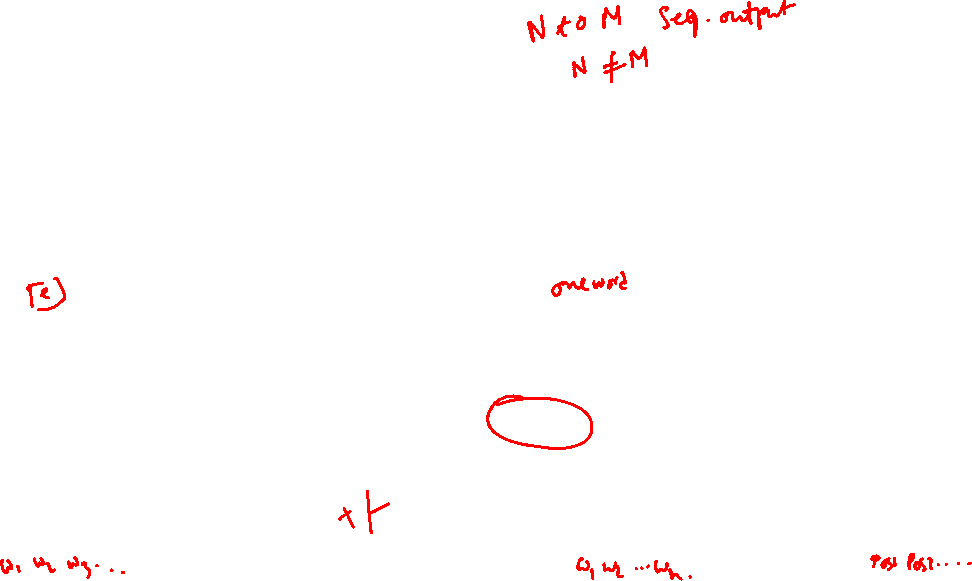 N to M Seq. output
N ≠ M
[e]
one word
w1 w2 w3 ...
w1 w2 ... wn.
Pos1 Pos2 ....